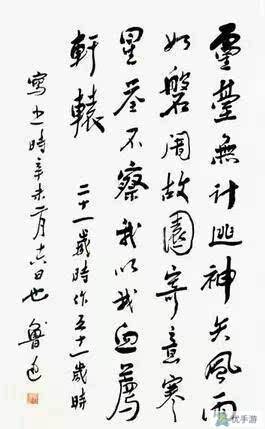 靈臺無計逃神矢風雨
如磐闇故園寄意寒
星荃不察我以我血薦
軒轅 二十一歲時作五十一歲時
寫之時辛未二月十六日也 魯迅
优手游